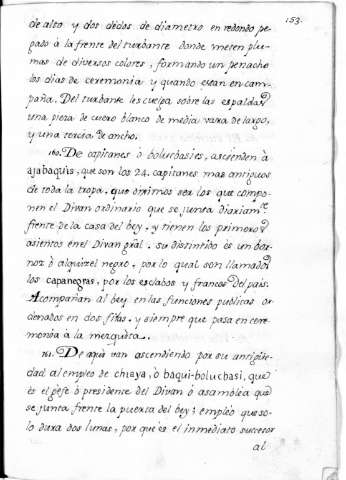 153.
de alto y dos dedos de diametro en redondo pe-
gado à la frente del turbante donde meten plu-
mas de diversos colores, formando un penacho
los dias de ceremonia y quando estan en cam-
paña. Del turbante les cuelga sobre las espaldas
una pieza de cuero blanco de media vara de largo,
y una tercia de ancho.
160. De capitanes ò bolucbasies, ascienden à
ajabaquis, que son los 24. capitanes mas antiguos
de toda la tropa, que diximos ser los que compo-
nen el Divan ordinario que se junta diariam.te
frente de la casa del bey, y tienen los primeros
asientos en el Divan gral. su distintibo es un bor-
noz ò alquizel negro, por lo qual son llamados
los capanegras, por los esclabos y francos del pais.
Acompañan al bey en las funciones publicas or-
denados en dos filas, y siempre que pasa en cere-
monia à la mezquita.
161. De aqui van ascendiendo por su antigüe-
dad al empleo de chiaya, ò baqui-bolucbasi, que
es el gefe ò presidente del Divan ò asamblea que
se junta frente la puerta del bey; empleo que so-
lo dura dos lunas, por que es el inmediato succesor
al